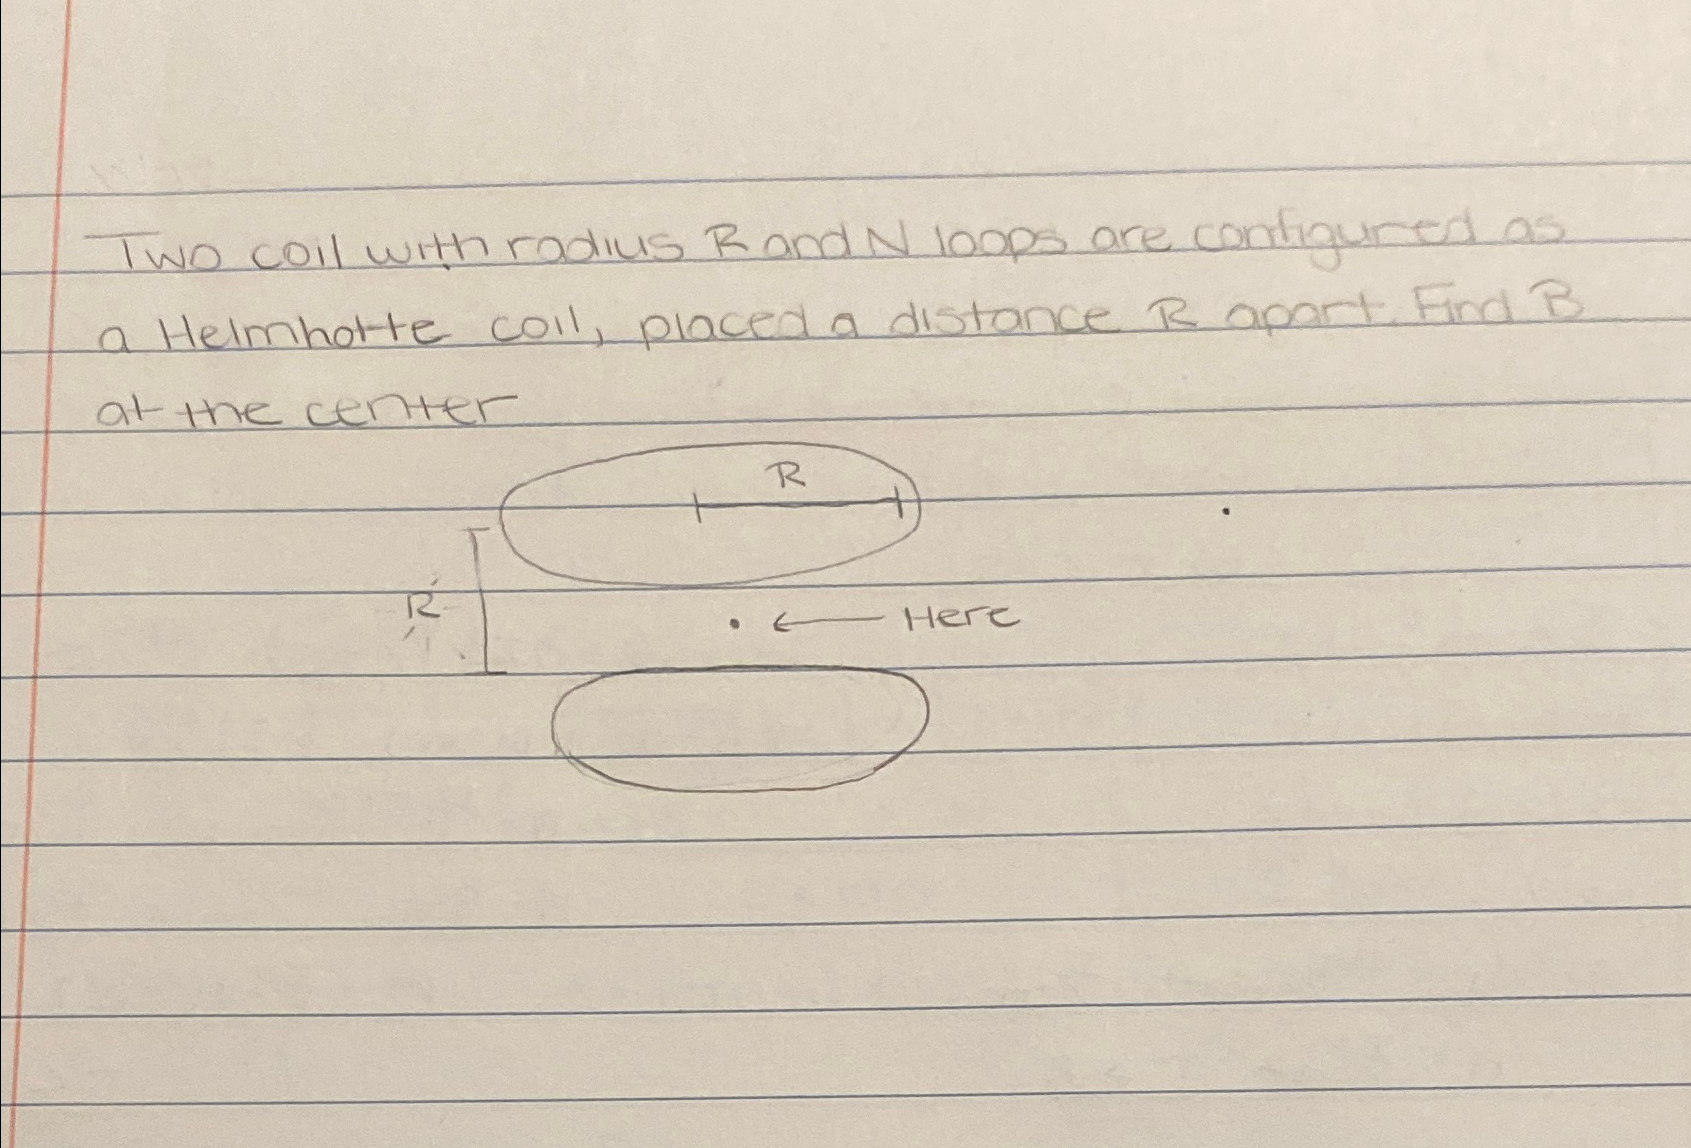 Two coil with radius R and N loops are configured as
a Helmhotte coil, placed a distance R apart. Find B
at the center
R
R
Here